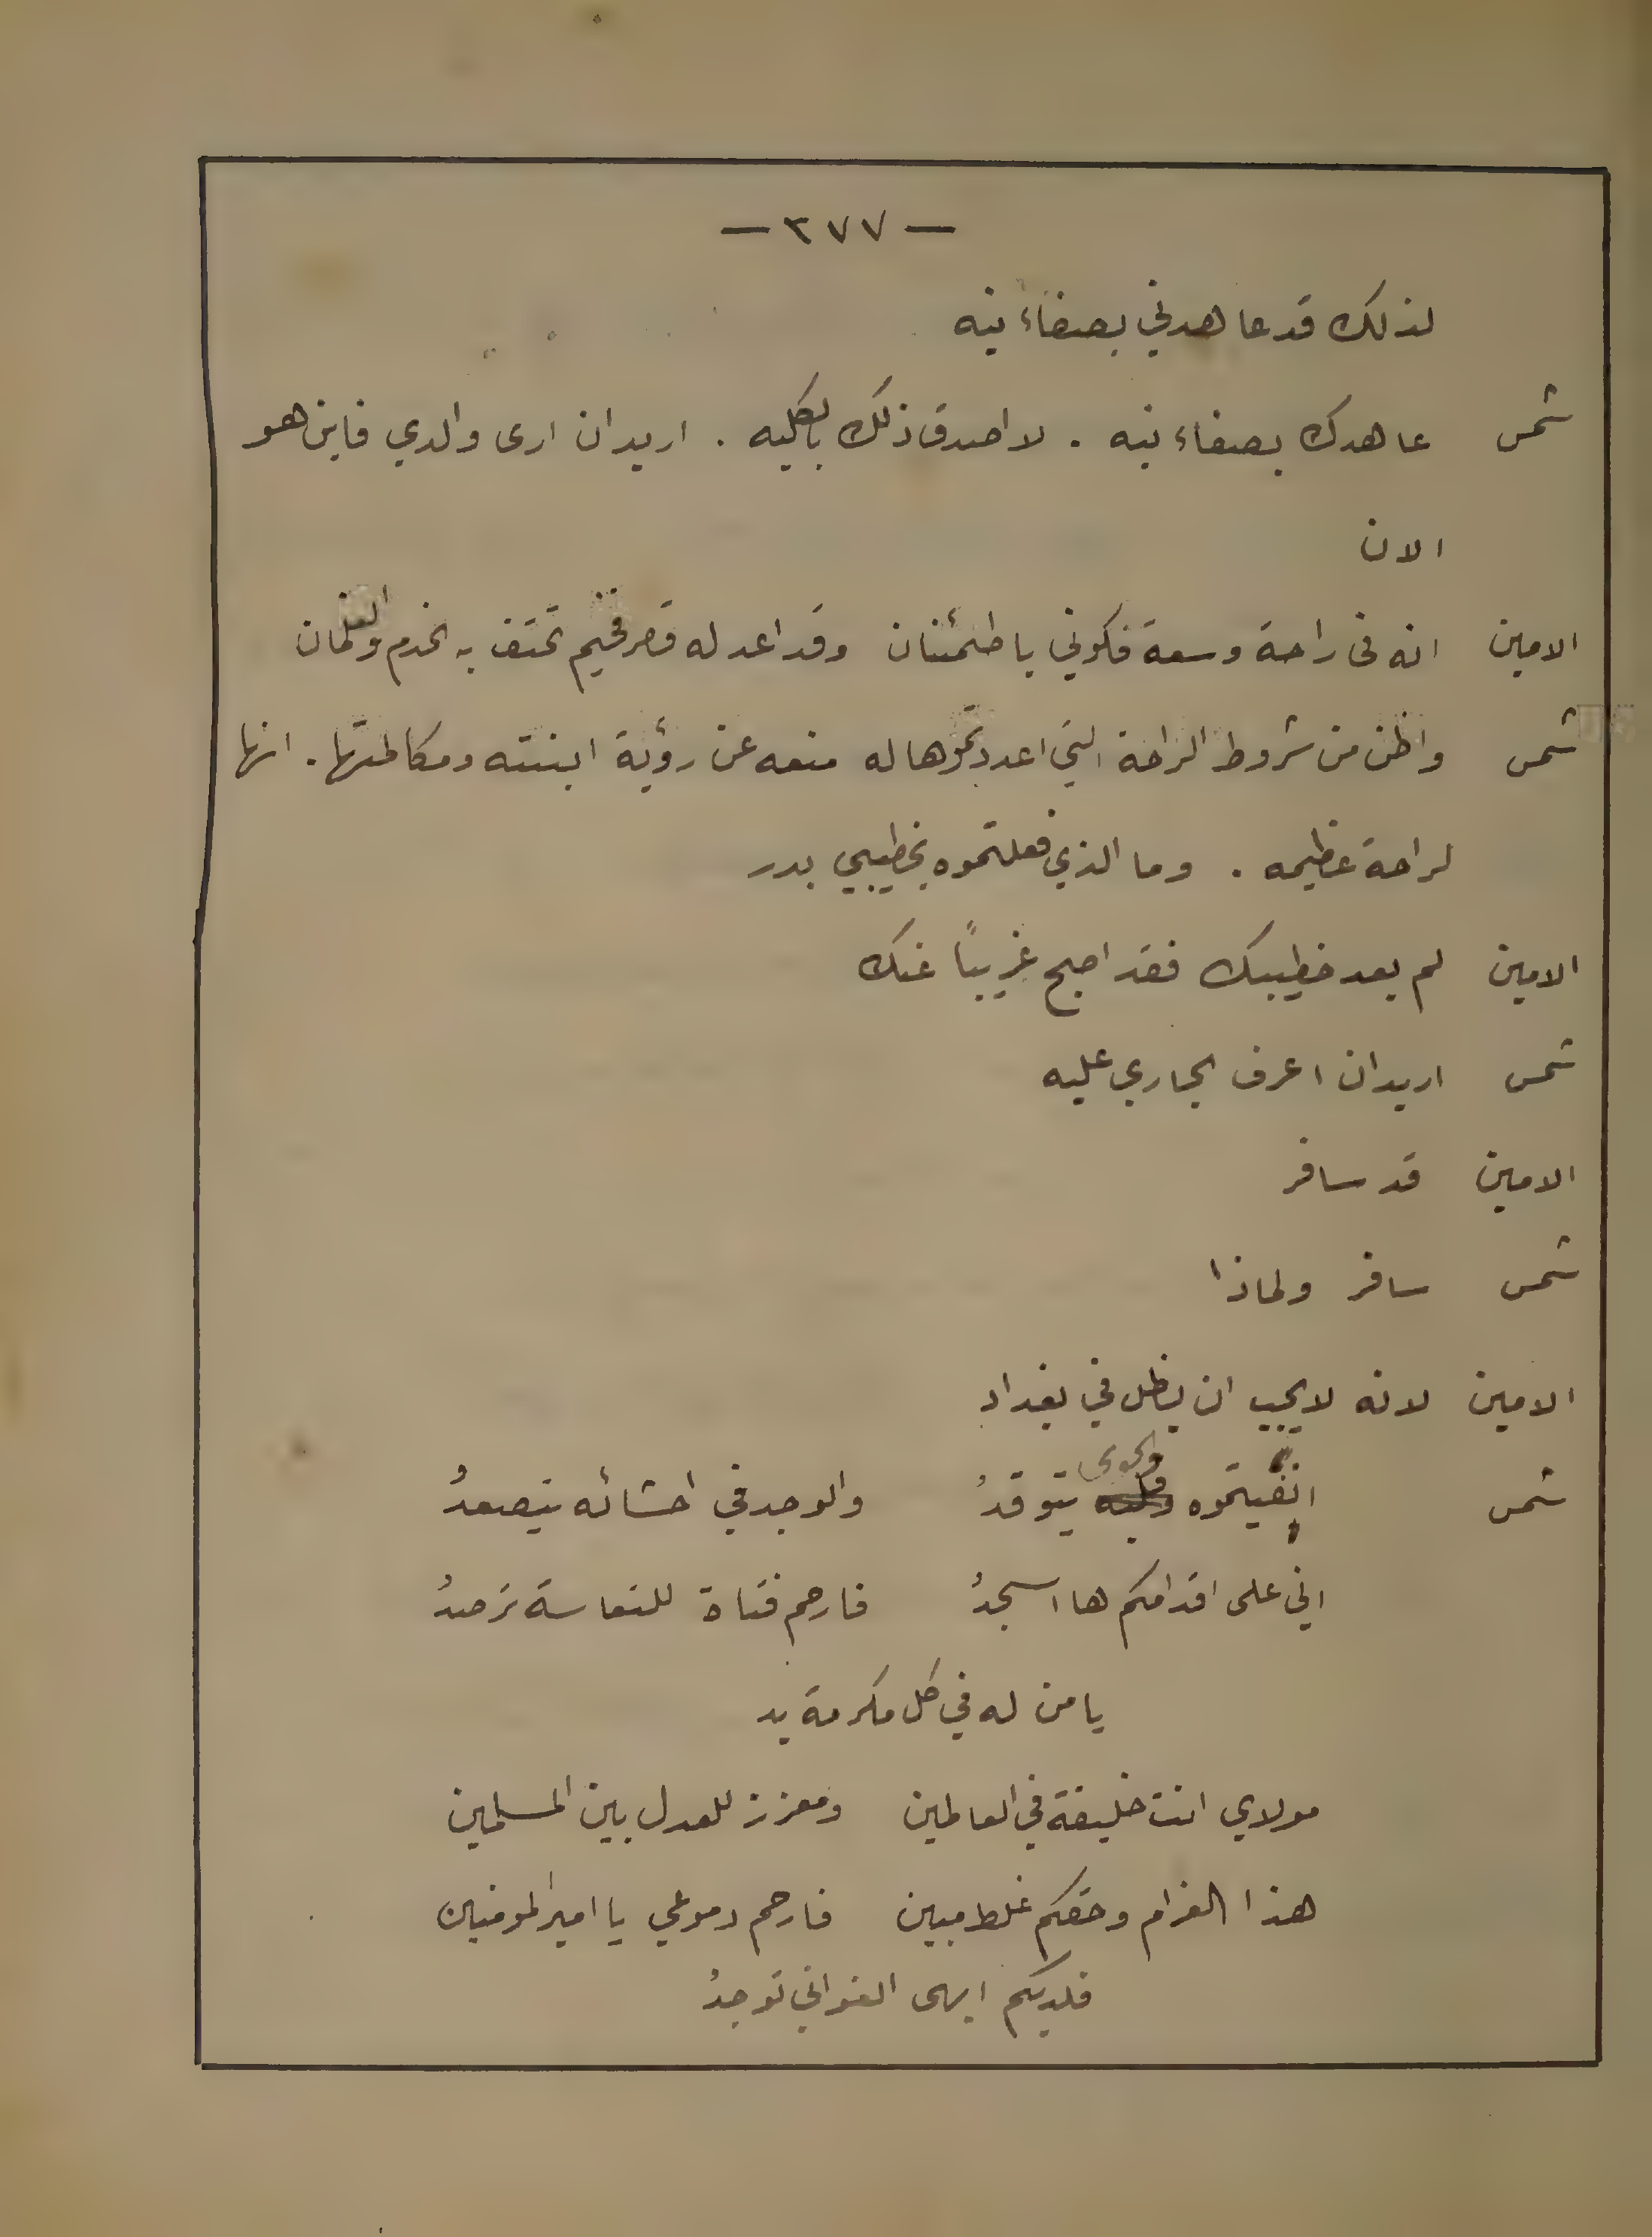 — ٣٧٧ —
لذلك قد عاهدني بصفاء نيه
شمس عاهدك بصفاء نيه . لا اصدق ذلك بالكليه . اريد ان ارى والدي فاين هو
الان
الامين انه في راحة وسعة فكوني باطمئنان وقد اعد له قصر فخيم تحتف به الخدم والغلمان
شمس واظن من شروط الراحة التي اعددتموها له منعه عن رؤية ابنته ومكالمتها . انها
لراحة عظيمه . وما الذي فعلتموه بخطيبي بدر
الامين لم يعد خطيبك فقد اصبح غريباً عنك
شمس اريد ان اعرف الجاري عليه
الامين قد سافر
شمس سافر ولماذا
الامين لانه لا يجب ان يظل في بغداد
شمس انفيتموه والجوى يتوقدُ والوجد في احشائه يتصعدُ
اني على اقدامكم ها اسجدُ فارحم فتاة للتعاسة ترصدُ
يا من له في كل مكرمة يد
مولاي انت خليفة في العالمين ومعزز للعدل بين المسلمين
هذا الغرام وحقكم غلط مبين فارحم دموعي يا امير المومنين
فلديكم ابهى الغواني توجدُ